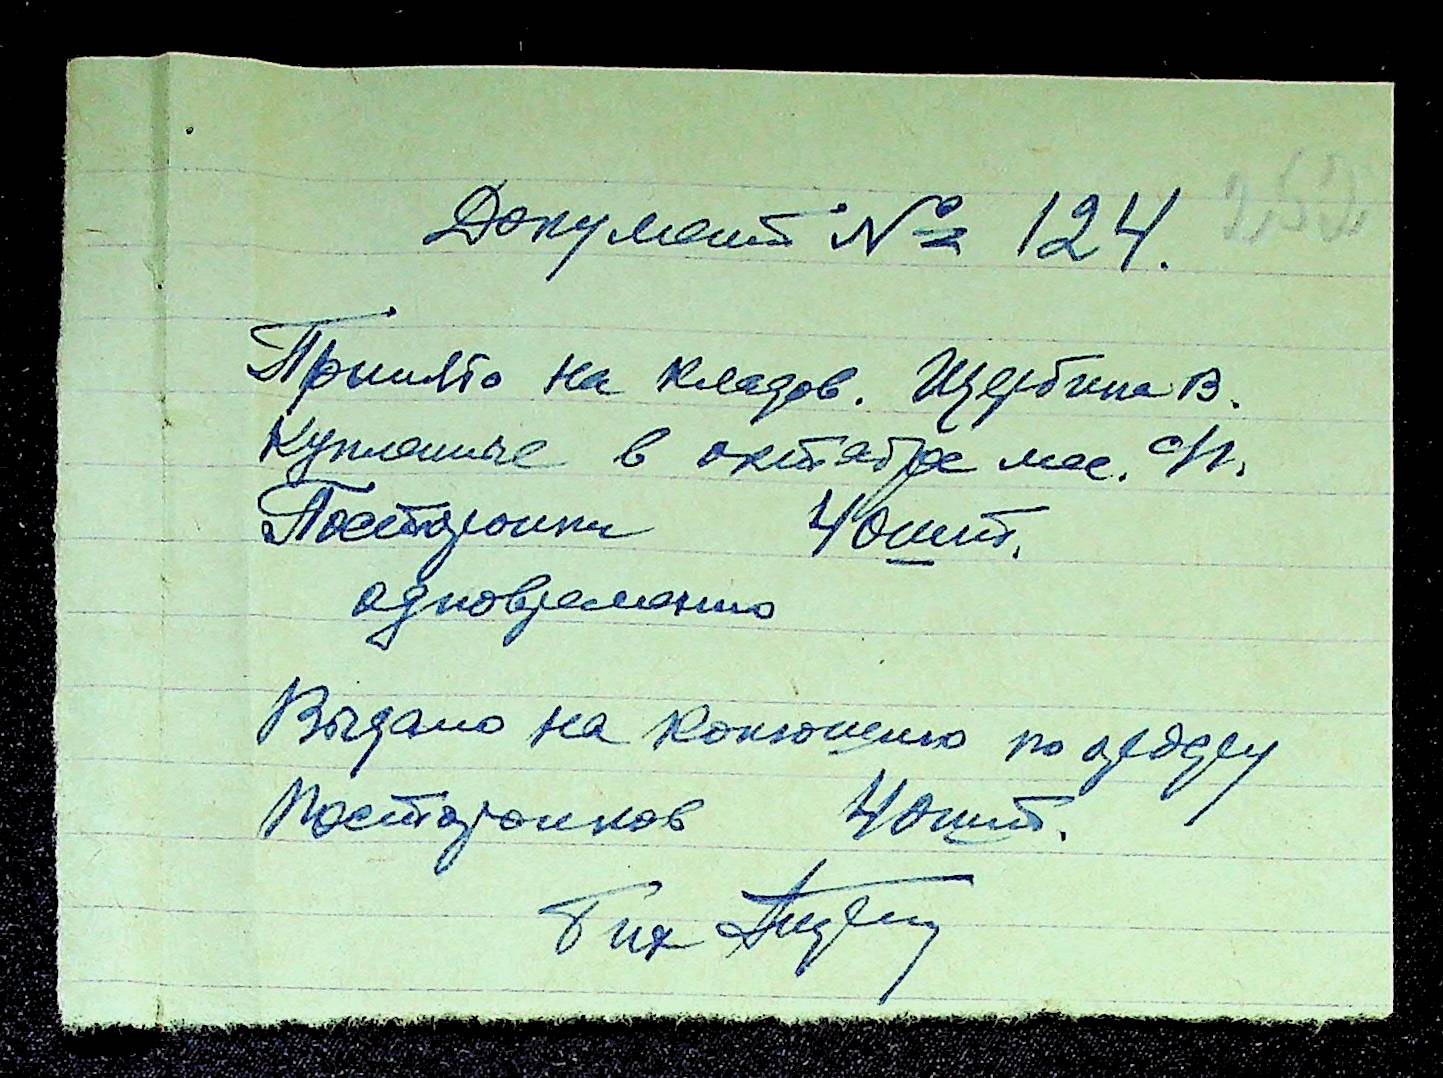 252
Документ № 124.
Принято на кладов. Щербина В.
Купленные в октябре мес. с/г.
Посторонки 40 шт.
одновременно
Выдано на конюшню по ордеру
Посторонков 40 шт.
Бух